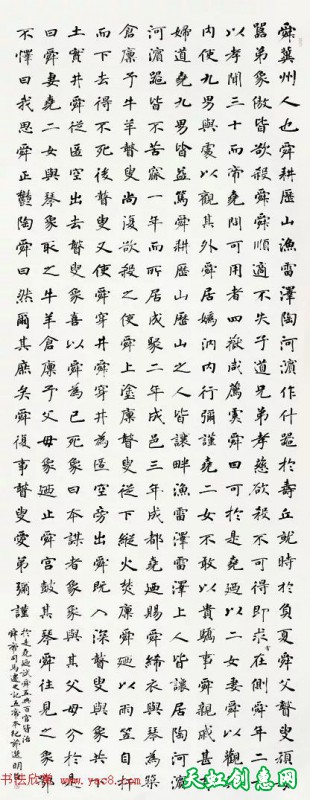 舜冀州人也舜耕歷山漁雷澤陶河濱作什器於壽丘就時於負夏舜父瞽叟頑母
嚚弟象傲皆欲殺舜舜順適不失子道兄弟孝慈欲殺不可得即求嘗在側舜年二十
以孝聞三十而帝堯問可用者四嶽咸薦虞舜曰可於是堯迺以二女妻舜以觀其
內使九男與處以觀其外舜居媯汭內行彌謹堯二女不敢以貴驕事舜親戚甚有
婦道堯九男皆益篤舜耕歷山歷山之人皆讓畔漁雷澤雷澤上人皆讓居陶河濱
河濱器皆不苦窳一年而所居成聚二年成邑三年成都堯迺賜舜絺衣與琴為築
倉廩予牛羊瞽叟尚復欲殺之使舜上塗廩瞽叟從下縱火焚廩舜迺以兩笠自扞
而下去得不死後瞽叟又使舜穿井舜穿井為匿空旁出舜既入深瞽叟與象共下
土實井舜從匿空出去瞽叟象喜以舜為已死象曰本謀者象象與其父母分於是
曰舜妻堯二女與琴象取之牛羊倉廩予父母象迺止舜宮鼓其琴舜往見之象愕
不懌曰我思舜正鬱陶舜曰然爾其庶矣舜復事瞽叟愛弟彌謹
於是堯迺試舜五典百官皆治
舜帝司馬遷史記五帝本紀節選明
书法欣赏 www.yac8.com
天虹创意网